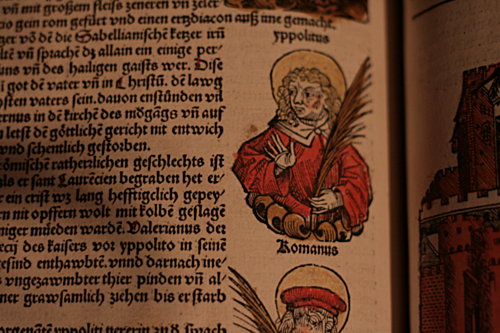 vñ mit großem fleiſs zeneren vñ zeler
cio gein rom gefürt vnd einen ertzdiacon auß ime gemacht.
tzer võ dē die Sabellianiſche ketzer irn̄
ellt vñ ſprachē dz allain ein einige per⸗
uns vñ des hailigen gaiſts wer. Diſe
i got dē vater vñ in Chriſtū. dē lawg
hſten vaters ſein. dauon enſtūnden vil
ernus in dē kirchē des mögāgs vñ auf
letſt dē göttlichē gericht nit entwich
vnd ſchentlich geſtorben.
römiſchē ratherrlichen geſchlechts iſt
als er ſant Laurēcien begraben het er⸗
er ein criſt wz lang hefftigclich gepey⸗
nit opffern wolt mit kolbē geſlagē
niger müeden wardē. Valerianus der
ecij des kaiſers vor yppolito in ſeinē
geſind enthawbtē. vnnd darnach ine
s vngezawmbter thier pinden vñ al⸗
ner grawſamlich ziehen bis er ſtarb
yppoliti
yppolitus
Romanus